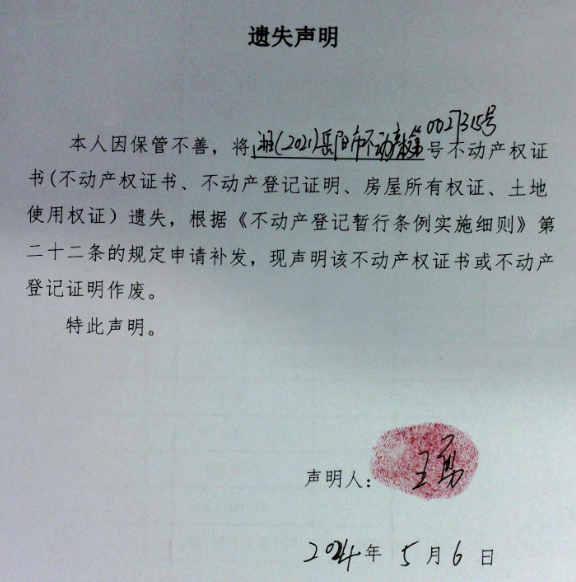 遗失声明
本人因保管不善，将湘(2021)岳阳市不动产第0027315号号不动产权证
书(不动产权证书、不动产登记证明、房屋所有权证、土地
使用权证）遗失，根据《不动产登记暂行条例实施细则》第
二十二条的规定申请补发，现声明该不动产权证书或不动产
登记证明作废。
特此声明。
声明人：王勇
2024年5月6日